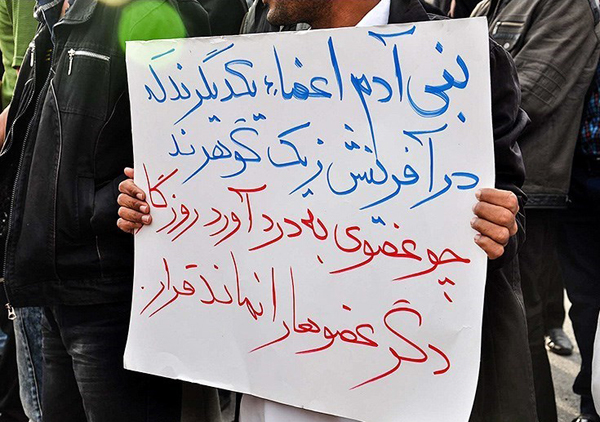 بنی آدم اعضاء یکدیگرند که
در آفرینش ز یک گوهرند
چو عضوی به درد آورد روزگا
دگر عضوها را نماند قرار.